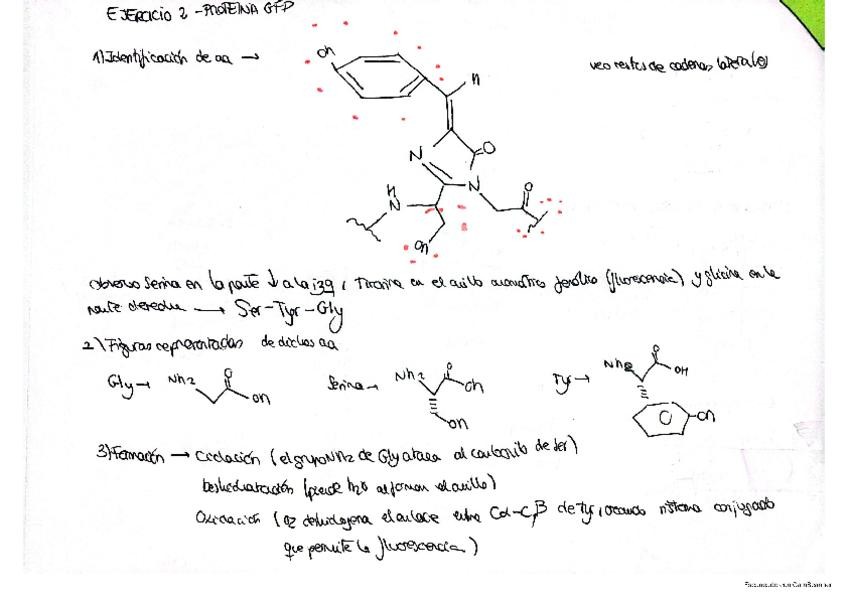 EJERCICIO 2 - PROTEINA GFP
1) Identificación de aa → veo restos de cadenas laterales
OH
H
N
O
N
H
N
O
OH
Observo Serina en la parte ↓ a la izq, Tirosina en el anillo aromático fenólico (fluorescencia) y glicina en la
parte derecha → Ser-Tyr-Gly
2) Figuras representadas de dichos aa
Gly → NH2 O OH Serina → NH2 O OH OH Tyr → NH2 O OH OH
3) Formación → Ciclación (el grupo NH2 de Gly ataca al carbonilo de Ser)
Deshidratación (pierde H2O al formar el anillo)
Oxidación (O2 deshidrogena el enlace entre Cα-Cβ de Tyr, creando sistema conjugado
que permite la fluorescencia)
Escaneado con CamScanner